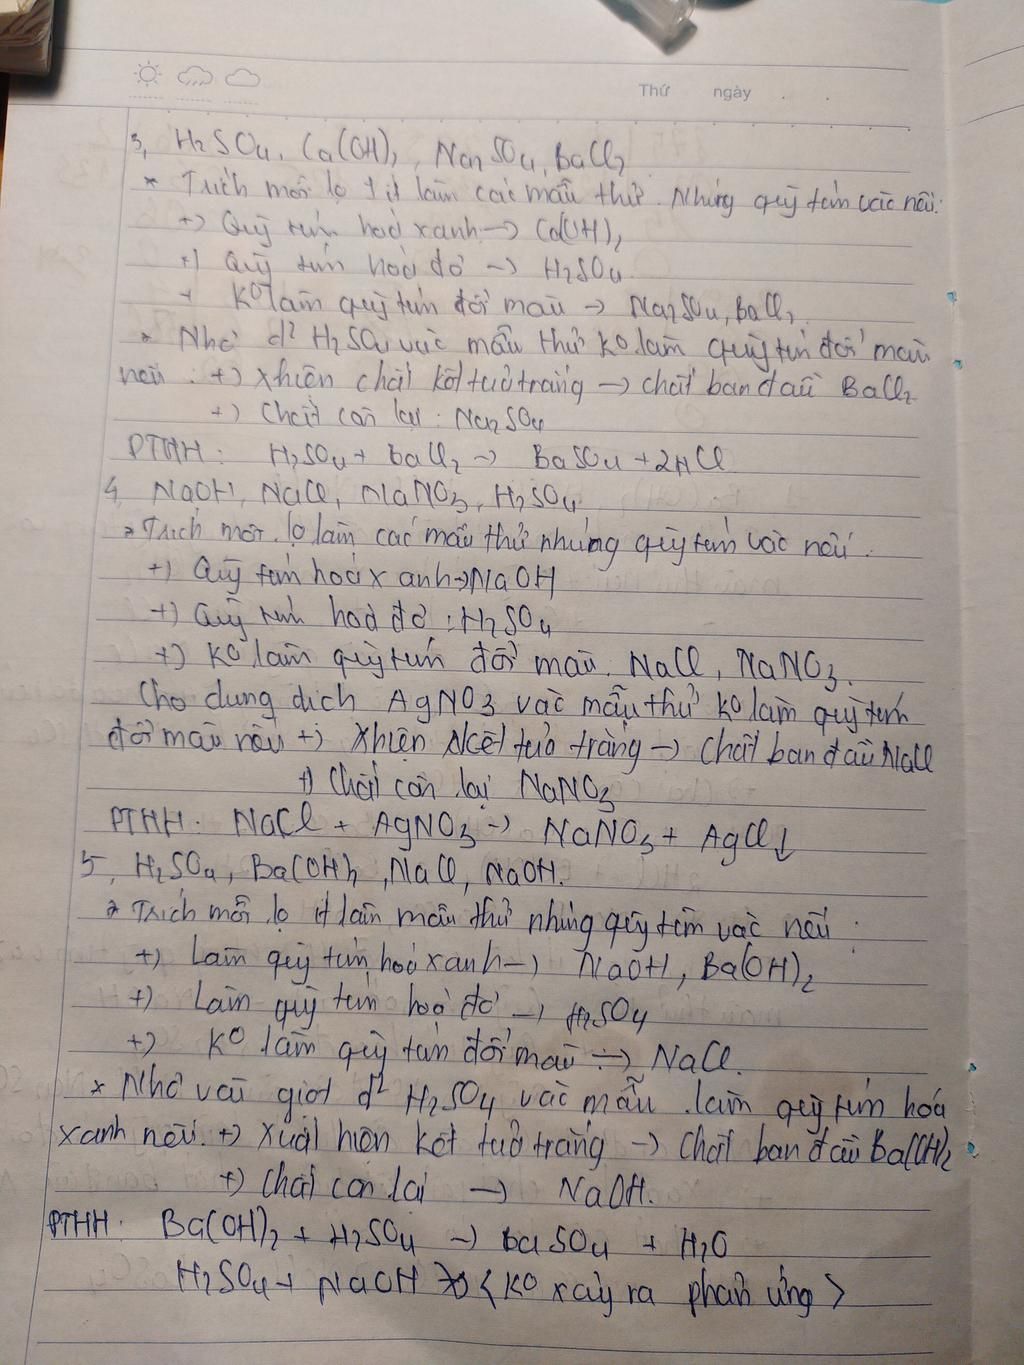 Thứ ngày
3, H2SO4, Ca(OH)2, Na2SO4, BaCl2
* Trích mỗi lọ 1 ít làm các mẫu thử. Nhúng quỳ tím vào nếu:
+) Quỳ tím hoá xanh → Ca(OH)2
+) Quỳ tím hoá đỏ → H2SO4
+ Ko làm quỳ tím đổi màu → Na2SO4, BaCl2.
* Nhỏ d² H2SO4 vào mẫu thử ko làm quỳ tím đổi màu
nếu: +) Xhiện chất kết tủa trắng → chất ban đầu BaCl2
+) Chất còn lại: Na2SO4
PTHH: H2SO4 + BaCl2 → BaSO4 + 2HCl
4, NaOH, NaCl, NaNO3, H2SO4
* Trích mỗi lọ làm các mẫu thử nhúng quỳ tím vào nếu:
+) Quỳ tím hoá xanh → NaOH
+) Quỳ tím hoá đỏ: H2SO4
+) Ko làm quỳ tím đổi màu. NaCl, NaNO3.
Cho dung dịch AgNO3 vào mẫu thử ko làm quỳ tím
đổi màu nếu +) Xhiện kết tủa trắng → Chất ban đầu NaCl
+) Chất còn lại NaNO3
PTHH: NaCl + AgNO3 → NaNO3 + AgCl↓
5, H2SO4, Ba(OH)2, NaCl, NaOH.
* Trích mỗi lọ ít làm mẫu thử nhúng quỳ tím vào nếu:
+) Làm quỳ tím hoá xanh → NaOH, Ba(OH)2
+) Làm quỳ tím hoá đỏ → H2SO4
+) Ko làm quỳ tím đổi màu → NaCl.
* Nhỏ vài giọt d² H2SO4 vào mẫu làm quỳ tím hoá
xanh nếu. +) Xuất hiện kết tủa trắng → Chất ban đầu Ba(OH)2
+) Chất còn lại → NaOH.
PTHH: Ba(OH)2 + H2SO4 → BaSO4 + H2O
H2SO4 + NaOH ↛ <Ko xảy ra phản ứng>